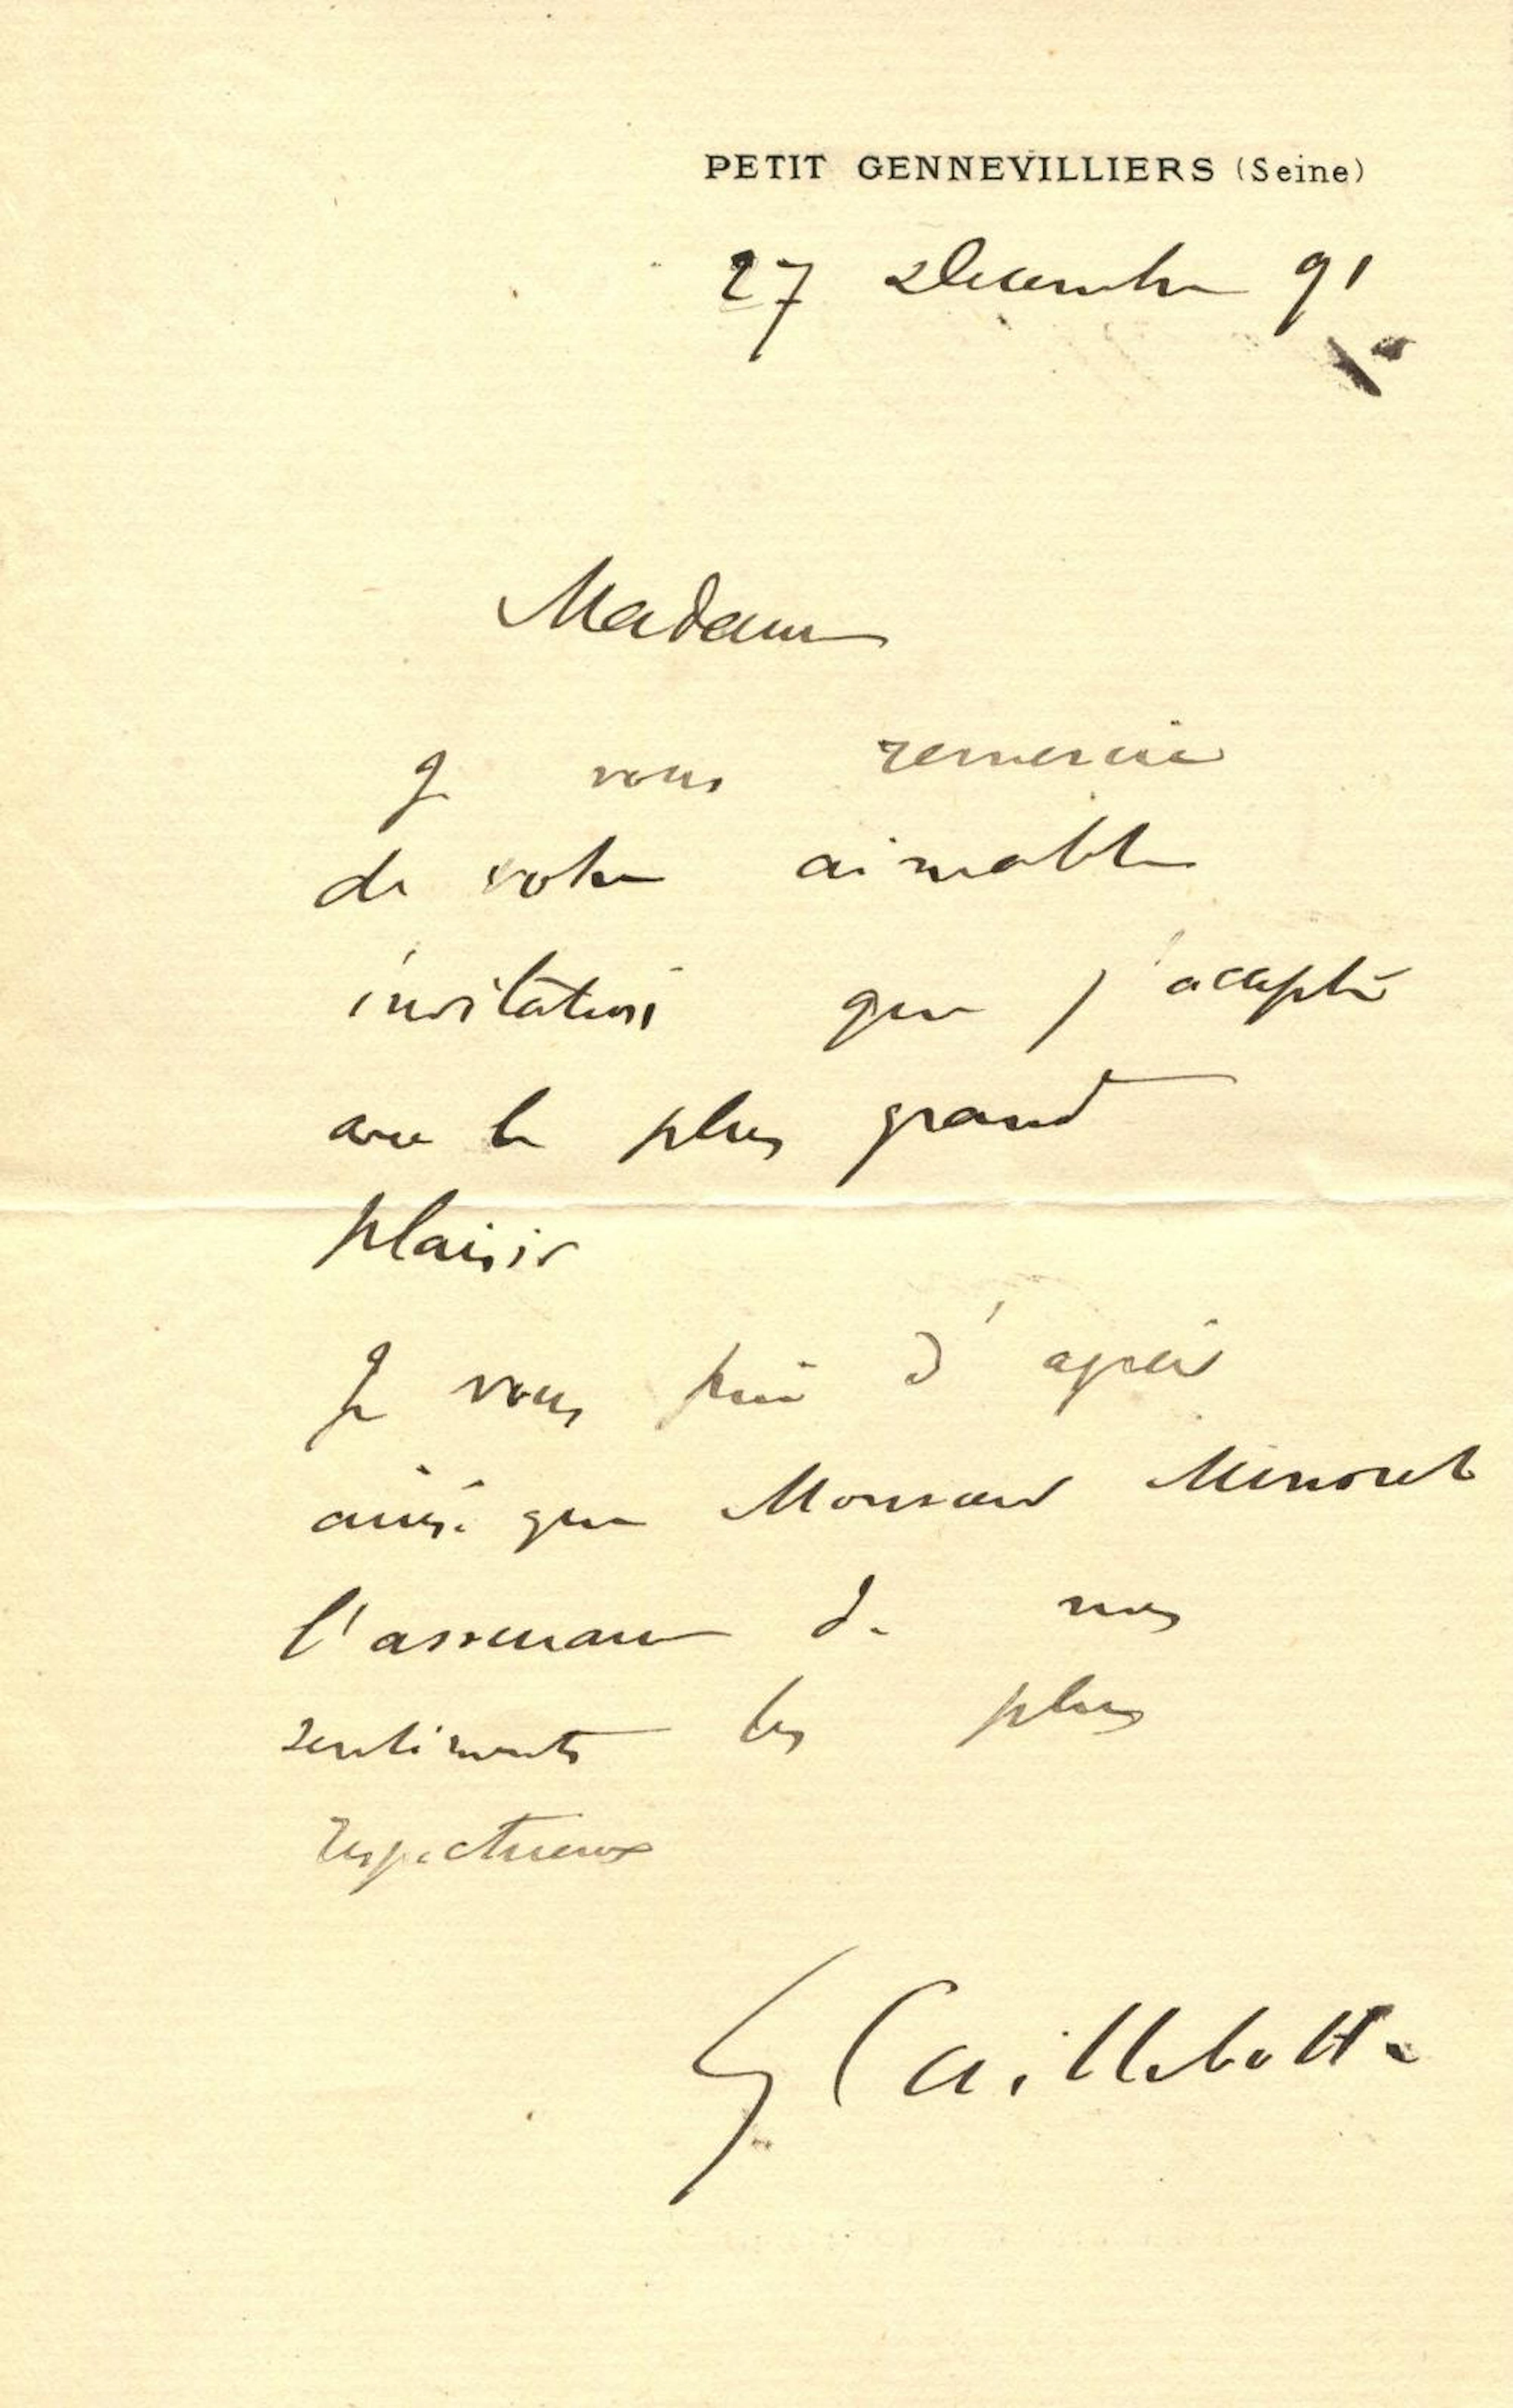 PETIT GENNEVILLIERS (Seine)
27 Decembre 91
Madame
Je vous remercie
de votre aimable
invitation que j'accepte
avec le plus grand
plaisir
Je vous prie d'agréer
ainsi que Monsieur Minoret
l'assurance de mes
sentiments les plus
respectueux
G Caillebotte